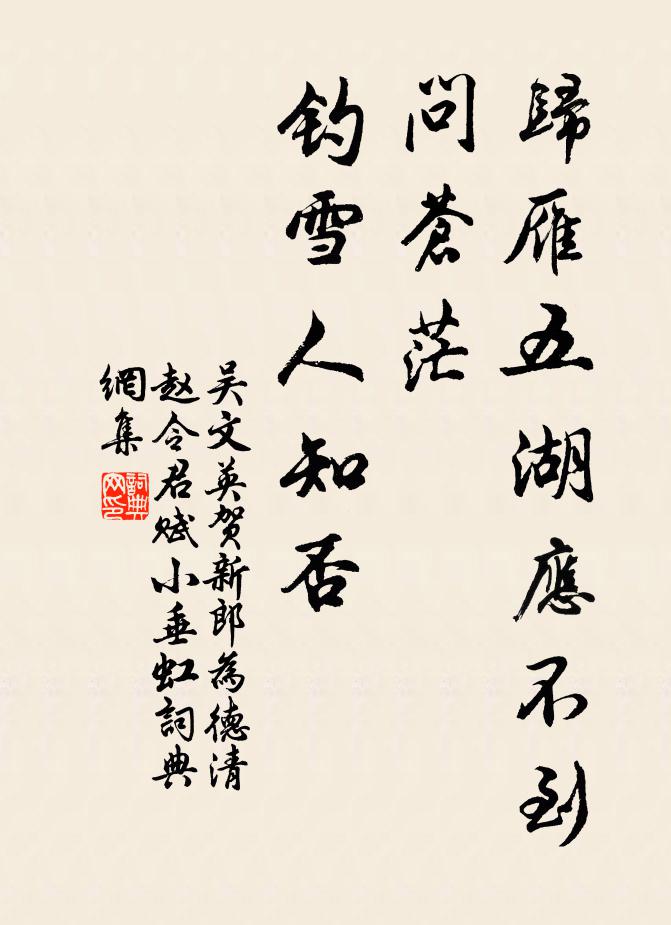 歸雁五湖應不到
問蒼茫
釣雪人知否
吴文英贺新郎為德清
赵令君赋小垂虹詞典
網集
詞典
网印